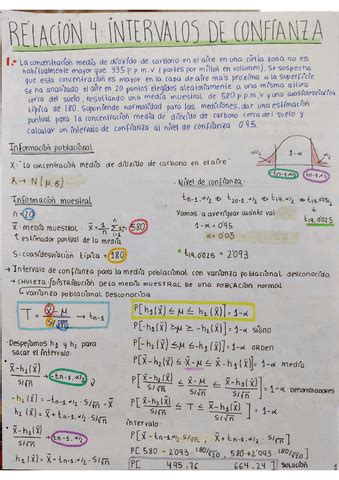 RELACIÓN 4: INTERVALOS DE CONFIANZA
1.- La concentración media de dióxido de carbono en el aire en una cierta zona no es
habitualmente mayor que 335 p.p.m.v (partes por millón en volumen). Se sospecha
que esta concentración es mayor en la capa de aire más próxima a la superficie
se ha analizado el aire en 20 puntos elegidos aleatoriamente a una misma altura
cerca del suelo, resultando una media muestral de 580 p.p.m v y una cuasidesviación
típica de 180. Suponiendo normalidad para las mediciones, dar una estimación
puntual para la concentración media de dióxido de carbono cerca del suelo y
calcular un intervalo de confianza al nivel de confianza 0'95.
Información poblacional
X: "La concentración media de dióxido de carbono en el aire"
X → N(μ, σ)
Información muestral
n = 20
X̄: media muestral · X̄ = 1/n Σ xi = 580
↳ estimador puntual de la media
S: cuasidesviación típica = 180
1-α
· Nivel de confianza
Vamos a averiguar cuánto val
1-α = 0'95
α = 0'05
t19,0.025 = 2'093
→ Intervalo de confianza para la media poblacional con varianza poblacional desconocida
→ CHULETA / DISTRIBUCIÓN DE LA MEDIA MUESTRAL DE UNA POBLACIÓN NORMAL
C/ VARIANZA POBLACIONAL DESCONOCIDA
T = X̄ - μ / S/√n → tn-1
P[h1(X̄) ≤ μ ≤ h2(X̄)] = 1-α
P[-h1(X̄) ≥ -μ ≥ -h2(X̄)] = 1-α SIGNO
P[-h2(X̄) ≤ -μ ≤ -h1(X̄)] = 1-α ORDEN
P[X̄-h2(X̄) ≤ X̄-μ ≤ X̄-h1(X̄)] = 1-α media
P[X̄-h2(X̄) / S/√n ≤ X̄-μ / S/√n ≤ X̄-h1(X̄) / S/√n] = 1-α DENOMINADORES
P[X̄-h2(X̄) / S/√n ≤ T ≤ X̄-h1(X̄) / S/√n] = 1-α
· Despejamos h1 y h2 para
sacar el intervalo.
intervalo:
P[580 - 2'093 · 180/√20, 580 + 2'093 · 180/√20]
P[ 495.76 , 664.24 ] SOLUCIÓN
1